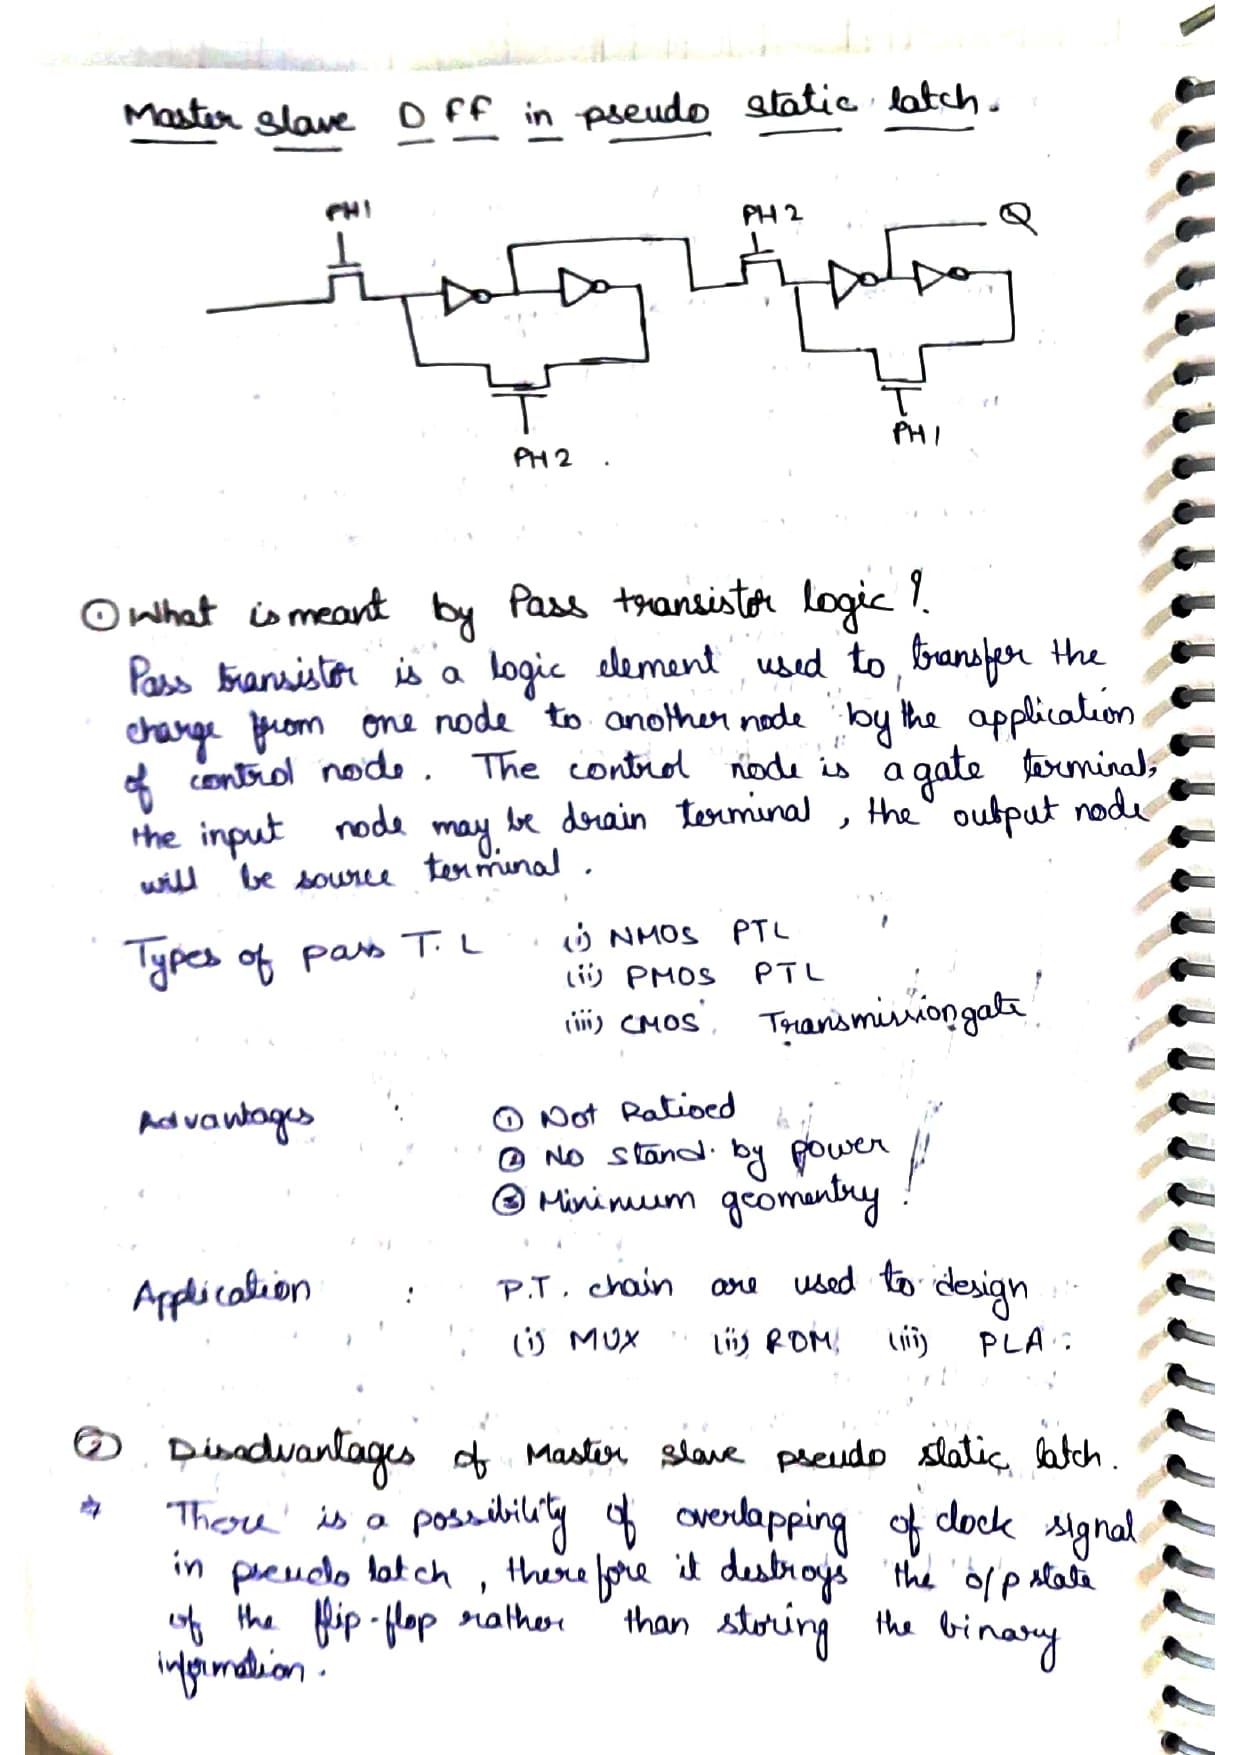 Master slave D FF in pseudo static latch.
PH1
PH 2
Q
PH 2
PH 1
① What is meant by Pass transistor logic ?
Pass transistor is a logic element used to transfer the
charge from one node to another node by the application
of control node. The control node is a gate terminal,
the input node may be drain terminal, the output node
will be source terminal.
Types of pass T. L (i) NMOS PTL
(ii) PMOS PTL
(iii) CMOS Transmission gate
Advantages : ① Not Ratioed
② No stand. by power
③ Minimum geomentry
Application : P.T. chain are used to design
(i) MUX (ii) ROM (iii) PLA.
② Disadvantages of Master slave pseudo static latch.
* There is a possibility of overlapping of clock signal
in pseudo latch, therefore it destroys the o/p state
of the flip-flop rather than storing the binary
information.